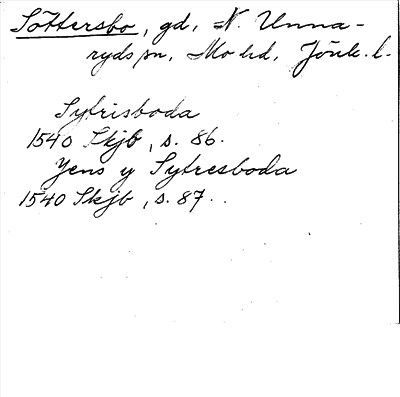 Söttersbo, gd, N. Unna-
ryds sn, Mo hd, Jönk. l.
Sytrisboda
1540 Skjb, s. 86.
Jens y Sytresboda
1540 Skjb, s. 87.